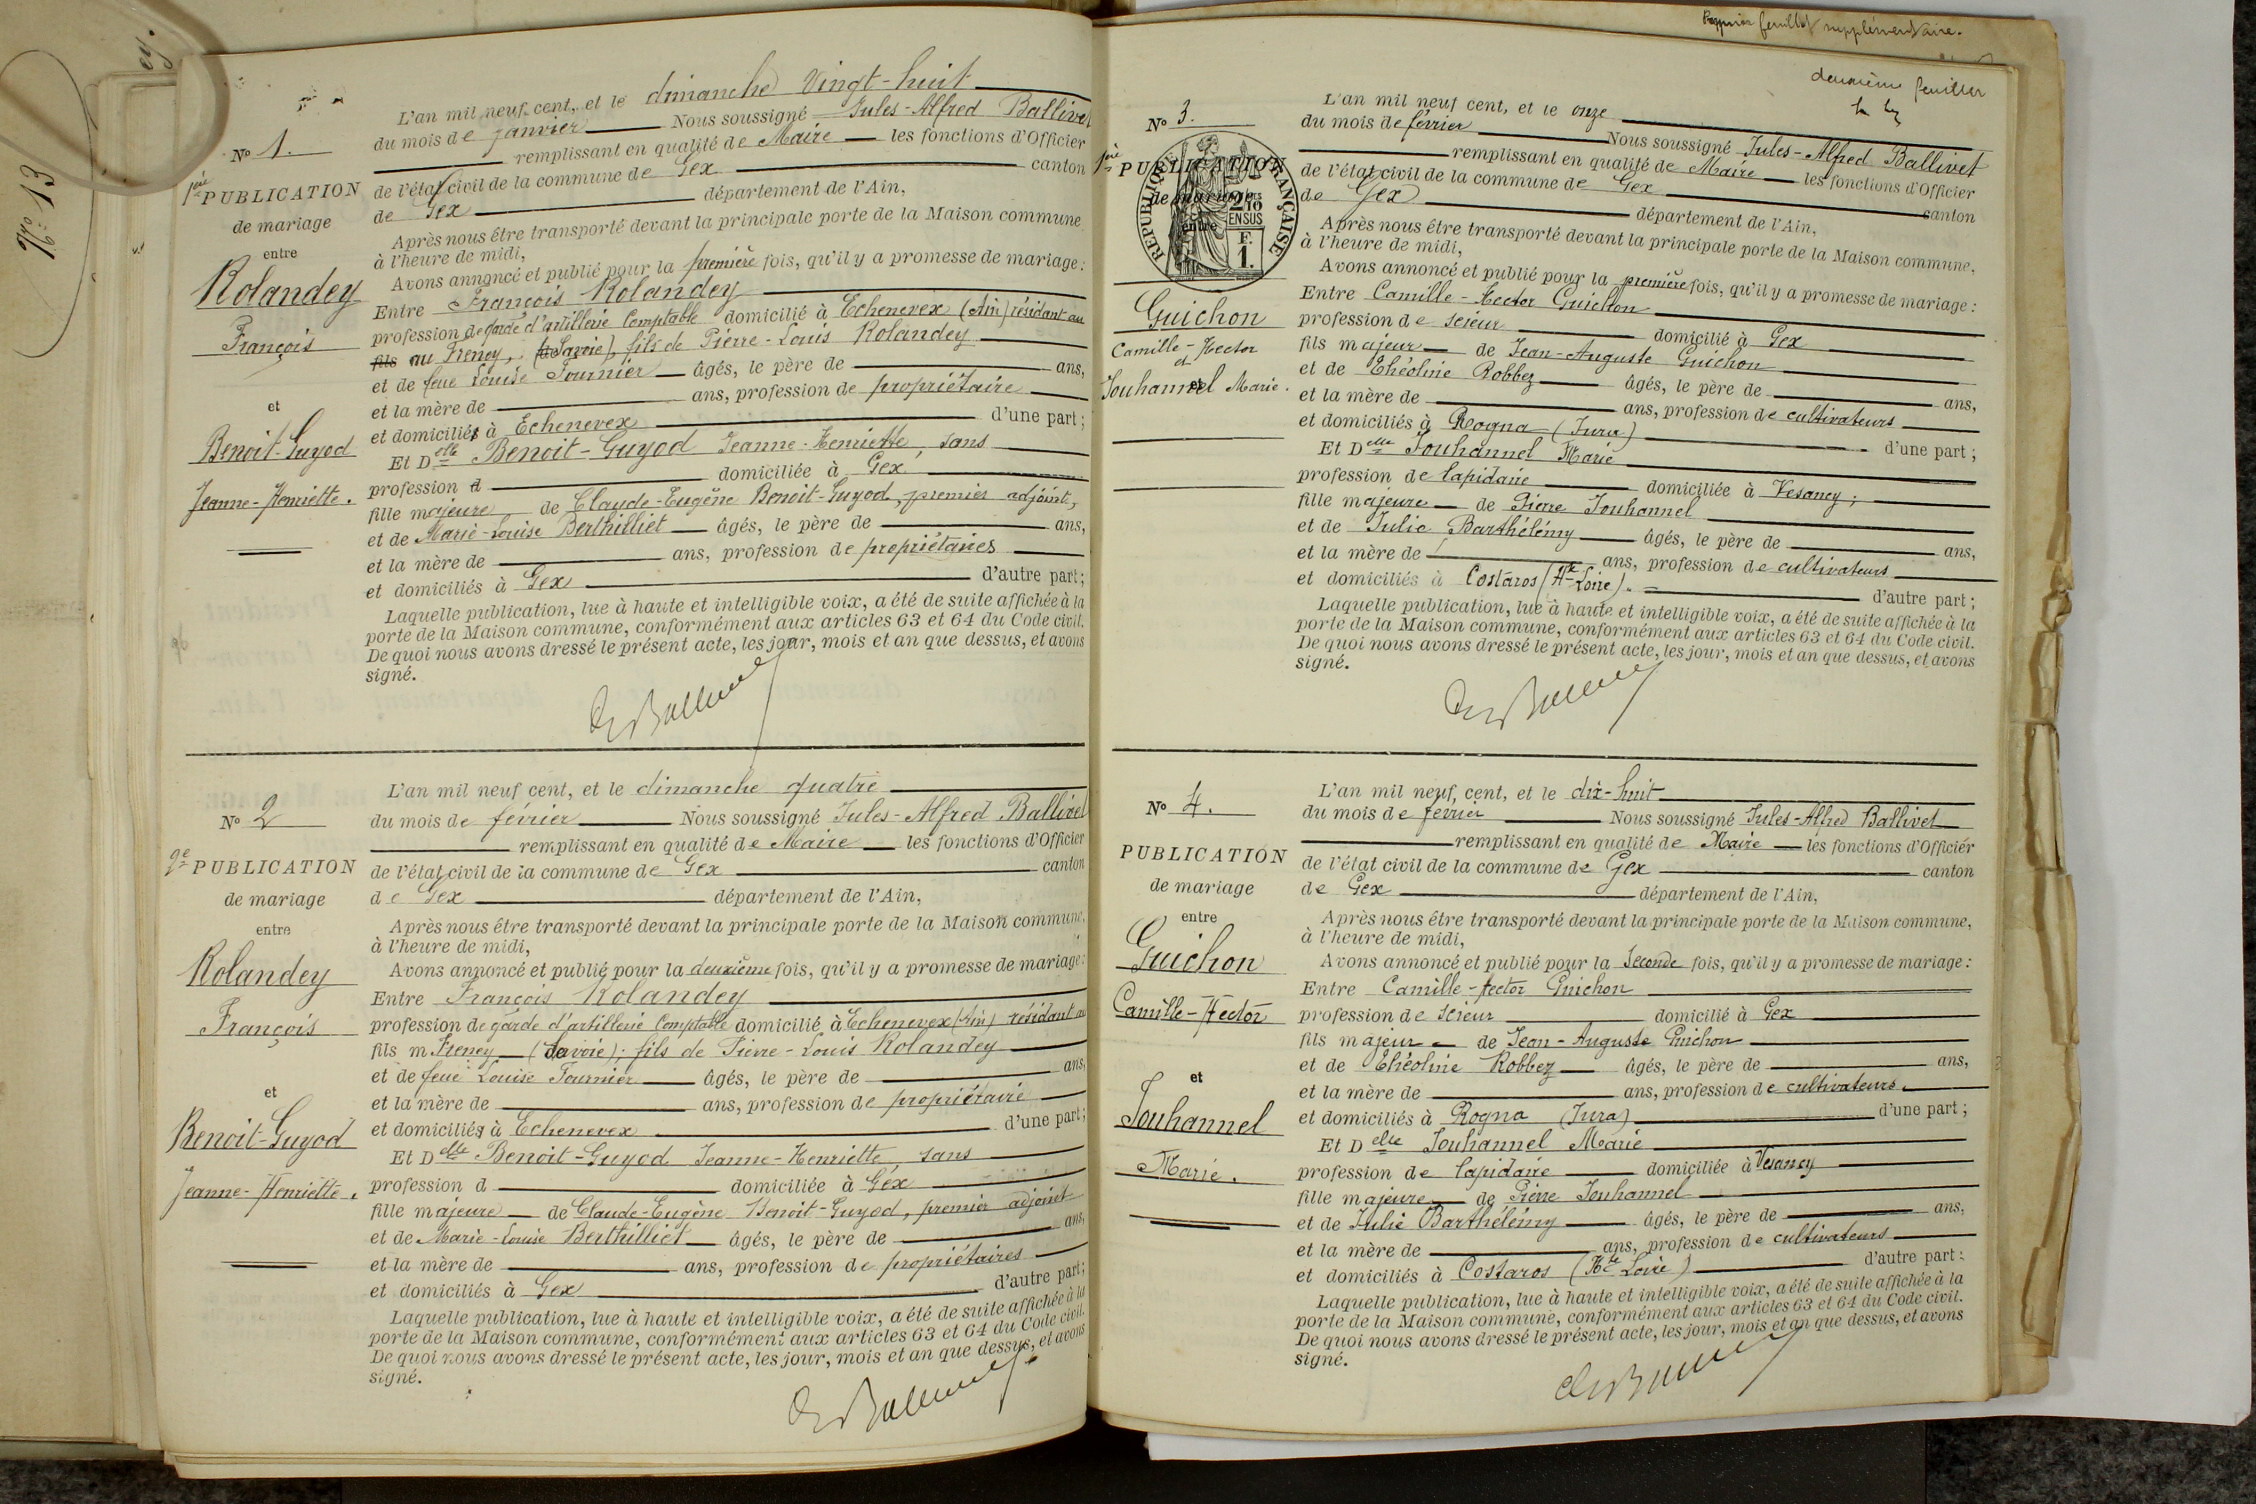 Nº 13
ey.
Nº 1.
1ère PUBLICATION
de mariage
entre
Rolandey
François
et
Benoit-Guyod
Jeanne-Henriette.
L'an mil neuf cent, et le dimanche vingt-huit
du mois de janvier Nous soussigné Jules-Alfred Ballivet
remplissant en qualité de Maire les fonctions d'Officier
de l'état civil de la commune de Gex canton
de Gex département de l'Ain,
Après nous être transporté devant la principale porte de la Maison commune,
à l'heure de midi,
Avons annoncé et publié pour la première fois, qu'il y a promesse de mariage :
Entre François Rolandey
profession de garde d'artillerie Comptable domicilié à Echenevex (Ain) résidant au
fils au Freney, (Savoie), fils de Pierre-Louis Rolandey
et de feue Louise Fournier âgés, le père de ans,
et la mère de ans, profession de propriétaire
et domiciliés à Echenevex d'une part ;
Et Delle Benoit-Guyod Jeanne-Henriette, sans
profession d domiciliée à Gex
fille majeure de Claude-Eugène Benoit-Guyod, premier adjoint,
et de Marie-Louise Berthilliet âgés, le père de ans,
et la mère de ans, profession de propriétaires
et domiciliés à Gex d'autre part ;
Laquelle publication, lue à haute et intelligible voix, a été de suite affichée à la
porte de la Maison commune, conformément aux articles 63 et 64 du Code civil.
De quoi nous avons dressé le présent acte, les jour, mois et an que dessus, et avons
signé.
Nº 2
2e PUBLICATION
de mariage
entre
Rolandey
François
et
Benoit-Guyod
Jeanne-Henriette.
L'an mil neuf cent, et le dimanche quatre
du mois de février Nous soussigné Jules-Alfred Ballivet
remplissant en qualité de Maire les fonctions d'Officier
de l'état civil de la commune de Gex canton
de Gex département de l'Ain,
Après nous être transporté devant la principale porte de la Maison commune,
à l'heure de midi,
Avons annoncé et publié pour la deuxième fois, qu'il y a promesse de mariage :
Entre François Rolandey
profession de garde d'artillerie Comptable domicilié à Echenevex (Ain) résidant au
fils m Freney (Savoie); fils de Pierre-Louis Rolandey
et de feue Louise Fournier âgés, le père de ans,
et la mère de ans, profession de propriétaire
et domiciliés à Echenevex d'une part ;
Et Delle Benoit-Guyod Jeanne-Henriette, sans
profession d domiciliée à Gex
fille majeure de Claude-Eugène Benoit-Guyod, premier adjoint
et de Marie-Louise Berthilliet âgés, le père de ans,
et la mère de ans, profession de propriétaires
et domiciliés à Gex d'autre part ;
Laquelle publication, lue à haute et intelligible voix, a été de suite affichée à la
porte de la Maison commune, conformément aux articles 63 et 64 du Code civil.
De quoi nous avons dressé le présent acte, les jour, mois et an que dessus, et avons
signé.
feuillet supplémentaire.
deuxième feuillet
Nº 3.
1ère PUBLICATION
de mariage
entre
RÉPUBLIQUE FRANÇAISE
2/10 ENSUS
F.
1.
Guichon
Camille-Hector
et
Jouhannel Marie.
L'an mil neuf cent, et le onze
du mois de février Nous soussigné Jules-Alfred Ballivet
remplissant en qualité de Maire les fonctions d'Officier
de l'état civil de la commune de Gex canton
de Gex département de l'Ain,
Après nous être transporté devant la principale porte de la Maison commune,
à l'heure de midi,
Avons annoncé et publié pour la première fois, qu'il y a promesse de mariage :
Entre Camille-Hector Guichon
profession de scieur domicilié à Gex
fils majeur de Jean-Auguste Guichon
et de Théoline Robbez âgés, le père de ans,
et la mère de ans, profession de cultivateurs
et domiciliés à Rogna (Jura) d'une part ;
Et Delle Jouhannel Marie
profession de lapidaire domiciliée à Vesancy ;
fille majeure de Pierre Jouhannel
et de Julie Barthélémy âgés, le père de ans,
et la mère de ans, profession de cultivateurs
et domiciliés à Costaros (Hte Loire). d'autre part ;
Laquelle publication, lue à haute et intelligible voix, a été de suite affichée à la
porte de la Maison commune, conformément aux articles 63 et 64 du Code civil.
De quoi nous avons dressé le présent acte, les jour, mois et an que dessus, et avons
signé.
Nº 4.
PUBLICATION
de mariage
entre
Guichon
Camille-Hector
et
Jouhannel
Marie.
L'an mil neuf cent, et le dix-huit
du mois de février Nous soussigné Jules-Alfred Ballivet
remplissant en qualité de Maire les fonctions d'Officier
de l'état civil de la commune de Gex canton
de Gex département de l'Ain,
Après nous être transporté devant la principale porte de la Maison commune,
à l'heure de midi,
Avons annoncé et publié pour la seconde fois, qu'il y a promesse de mariage :
Entre Camille-Hector Guichon
profession de scieur domicilié à Gex
fils majeur de Jean-Auguste Guichon
et de Théoline Robbez âgés, le père de ans,
et la mère de ans, profession de cultivateurs
et domiciliés à Rogna (Jura) d'une part ;
Et Delle Jouhannel Marie
profession de lapidaire domiciliée à Vesancy
fille majeure de Pierre Jouhannel
et de Julie Barthélémy âgés, le père de ans,
et la mère de ans, profession de cultivateurs
et domiciliés à Costaros (Hte Loire) d'autre part ;
Laquelle publication, lue à haute et intelligible voix, a été de suite affichée à la
porte de la Maison commune, conformément aux articles 63 et 64 du Code civil.
De quoi nous avons dressé le présent acte, les jour, mois et an que dessus, et avons
signé.